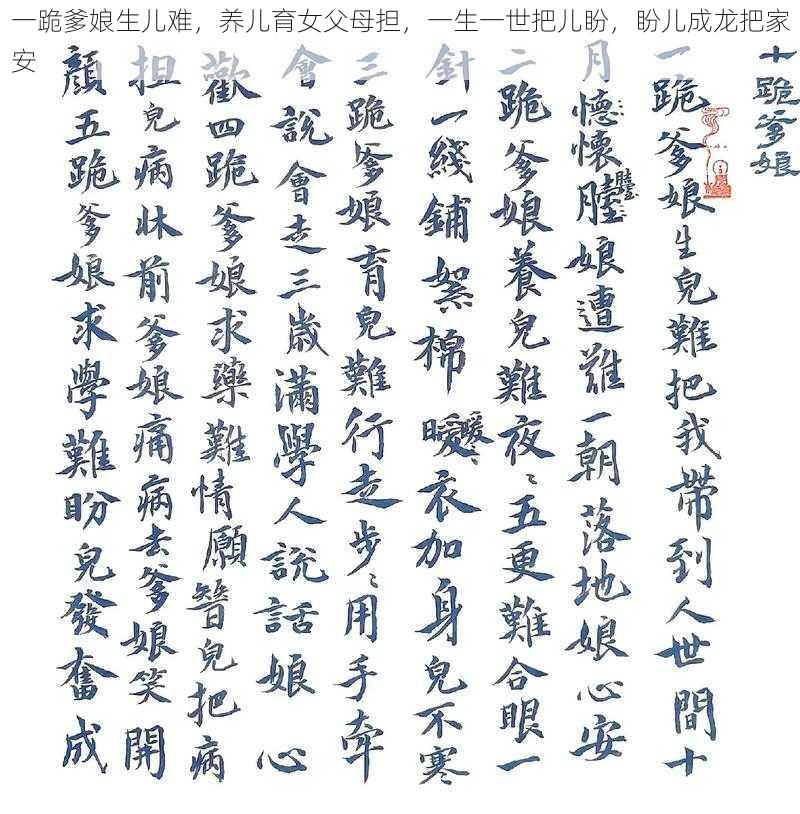 一跪爹娘生儿难，养儿育女父母担，一生一世把儿盼，盼儿成龙把家
安
十跪爹娘
一跪爹娘生兒難把我帶到人世間十
月懷娘遭難一朝落地娘心安
二跪爹娘養兒難夜〻五更難合眼一
針一綫鋪絮棉暖衣加身兒不寒
三跪爹娘育兒難行走步〻用手牽
會說會走三歲滿學人說話娘心
歡四跪爹娘求藥難情願替兒把病
担兒病牀前爹娘痛病去爹娘笑開
顏五跪爹娘求學難盼兒發奮成